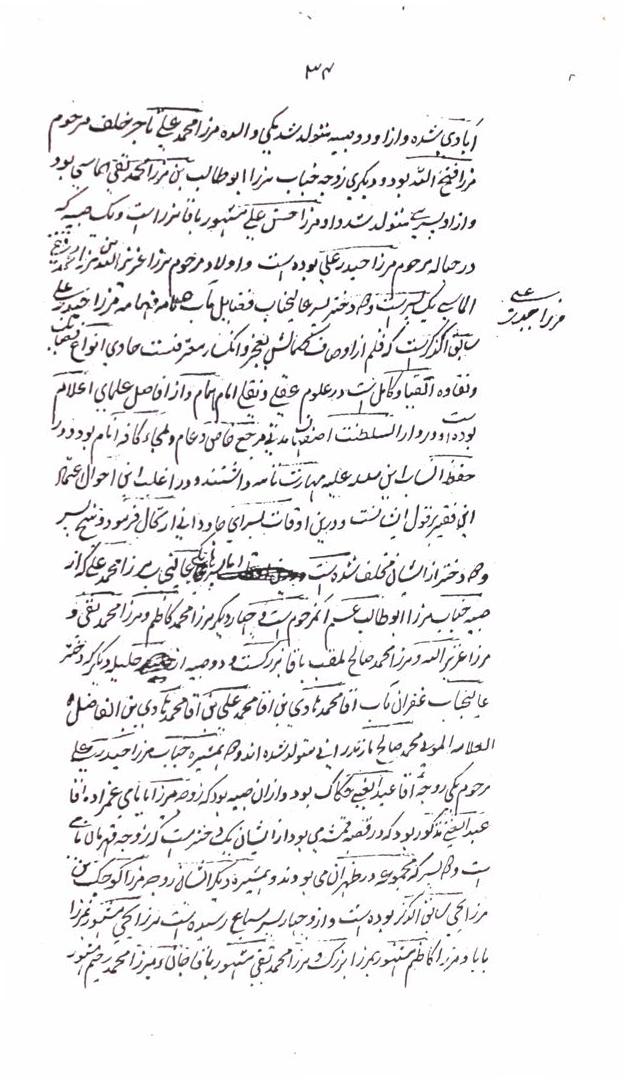 ۳۴
آبادی شده و از او دو صبیه متولد شد یکی والده مرزا محمد علی تاجر خلف مرحوم
مرزا فتح الله بود و دیگری زوجه جناب مرزا ابوطالب بن مرزا محمد تقی الماسی بود
و از او پسری متولد شد داود مرزا حسن علی مشهور باقا مرزا است و یک صبیه که
در حباله مرحوم مرزا حیدر علی بوده است و اولاد مرحوم مرزا عزیز الله بن مرزا محمد تقی
الماسی یک پسر است و دختر پسر عالیجناب فضایل مآب علامه فهامه مرزا حیدر علی
مرزا حیدر علی
سابق الذکر است که قلم از اوصاف کمالش بعجز و انکسار معترفست حاوی انواع
و نقاوه اتقیا و کامل است در علوم عقلی و نقلی امام همام و از افاضل علمای اعلام
بوده است و در دار السلطنت اصفهان مدتی مرجع خاص و عام و ملجاء کافه انام بود و در
حفظ انساب این سلسله علیه مهارت تامه داشتند و در اغلب این احوال اعتماد
این فقیر بقول ایشانست و درین اوقات بسرای جاودانی ارتحال فرمود و پنج پسر
و دختر از ایشان مخلف شده است مرزا محمد علی که از
صبیه جناب مرزا ابوطالب عم آنمرحوم است و چهار دیگر مرزا محمد کاظم و مرزا محمد تقی و
مرزا عزیز الله و مرزا محمد صالح ملقب باقا بزرگست و دو صبیه از حلیله دیگر که دختر
عالیجناب غفران مآب اقا محمد هادی بن اقا محمد علی بن اقا محمد هادی بن الفاضل
العلامه المولی محمد صالح مازندرانی متولد شده اند و همشیره جناب مرزا حیدر علی
مرحوم یکی زوجه اقا عبد الغنی حکاک بود و از ان صبیه بود که زوجه مرزا بابای عمزاده اقا
عبد الغنی مذکور بود که در قصبه قمشه می بود از ایشان یک دختر است که زوجه قهرمان
است و پسر که مجموعه در طهران می بودند و همشیره دیگر ایشان زوجه مرزا کوچک بن
مرزا یحیی سابق الذکر بوده است و از و چهار پسر بسماع رسیده است مرزا یحیی مشهور بمرزا
بابا و مرزا کاظم مشهور بمرزا بزرگ و مرزا محمد تقی مشهور باقا جانی و مرزا محمد رحیم مشهور